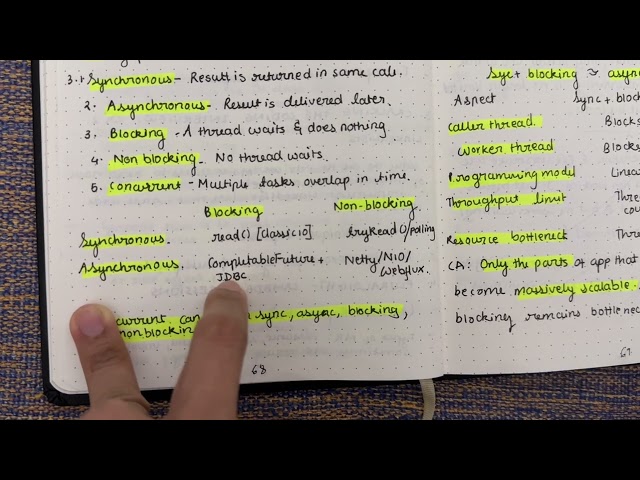 3.1 Synchronous - Result is returned in same call.
2. Asynchronous - Result is delivered later.
3. Blocking - A thread waits & does nothing.
4. Non blocking - No thread waits.
5. Concurrent - Multiple tasks overlap in time.
Blocking Non-blocking
Synchronous. read() [classic IO] tryRead()/polling
Asynchronous. CompletableFuture + Netty/NIO/
JDBC Webflux.
sync, async, blocking,
68
Sync + blocking ~ async
Aspect Sync + block
Caller thread. Blocks
Worker thread Blocks
Programming model Linea
Throughput limit Thre
cou
Resource bottleneck Thre
CA: Only the parts of app that
become massively scalable.
blocking remains bottlenec